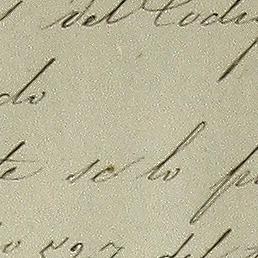 del Codi
do
te se lo p
527 del